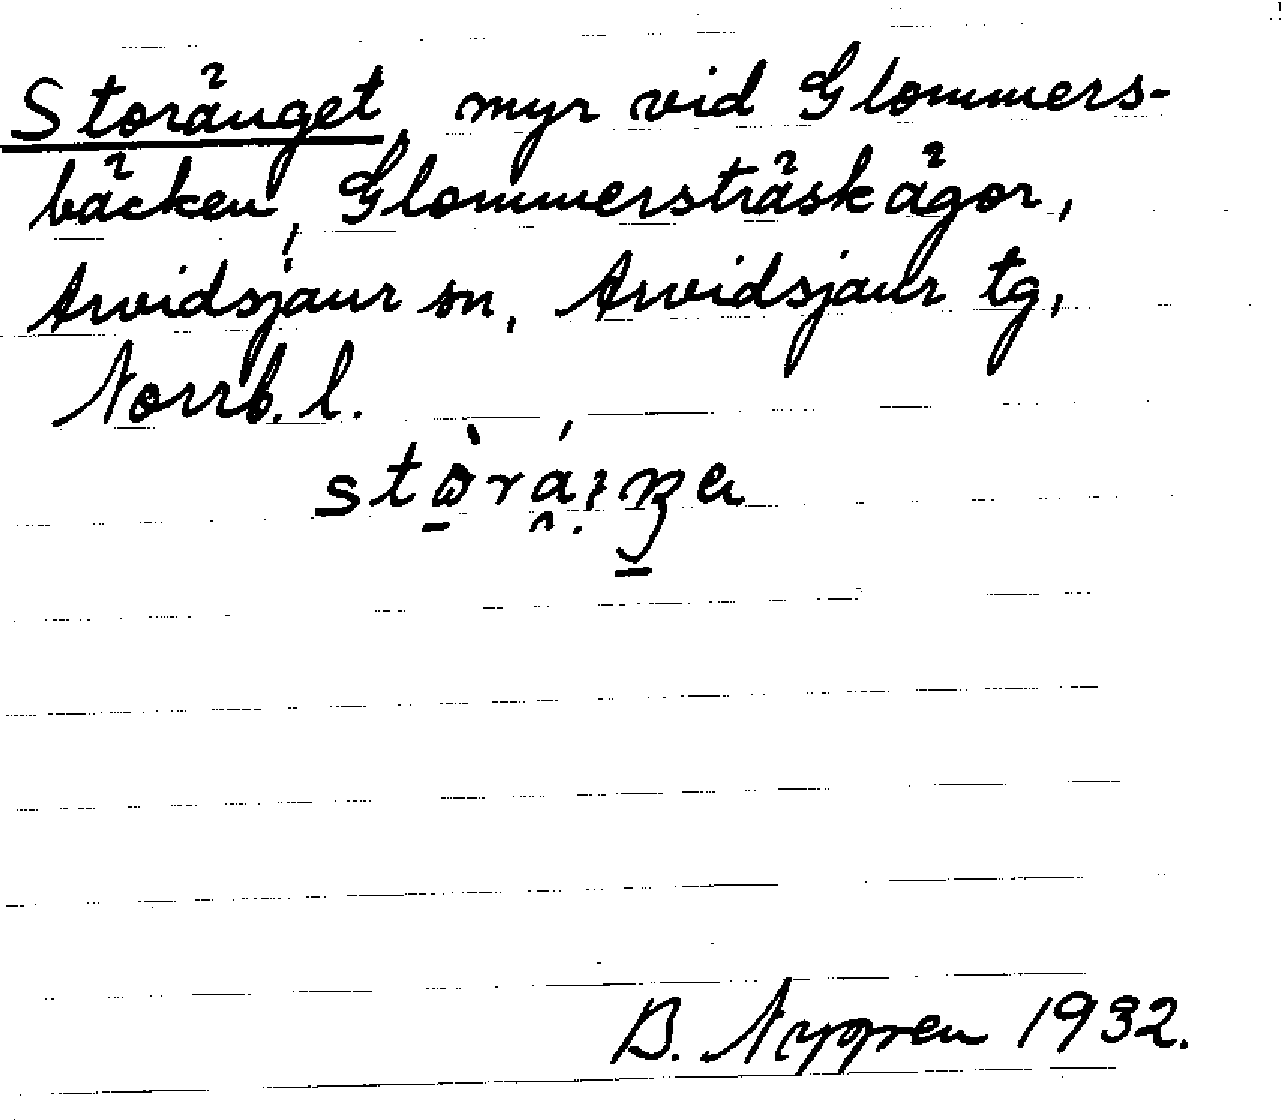 Storänget, myr vid Glommers-
bäcken, Glommersträsk ägor,
Arvidsjaur sn, Arvidsjaur tg,
Norrb. l.
B. Nygren 1932.